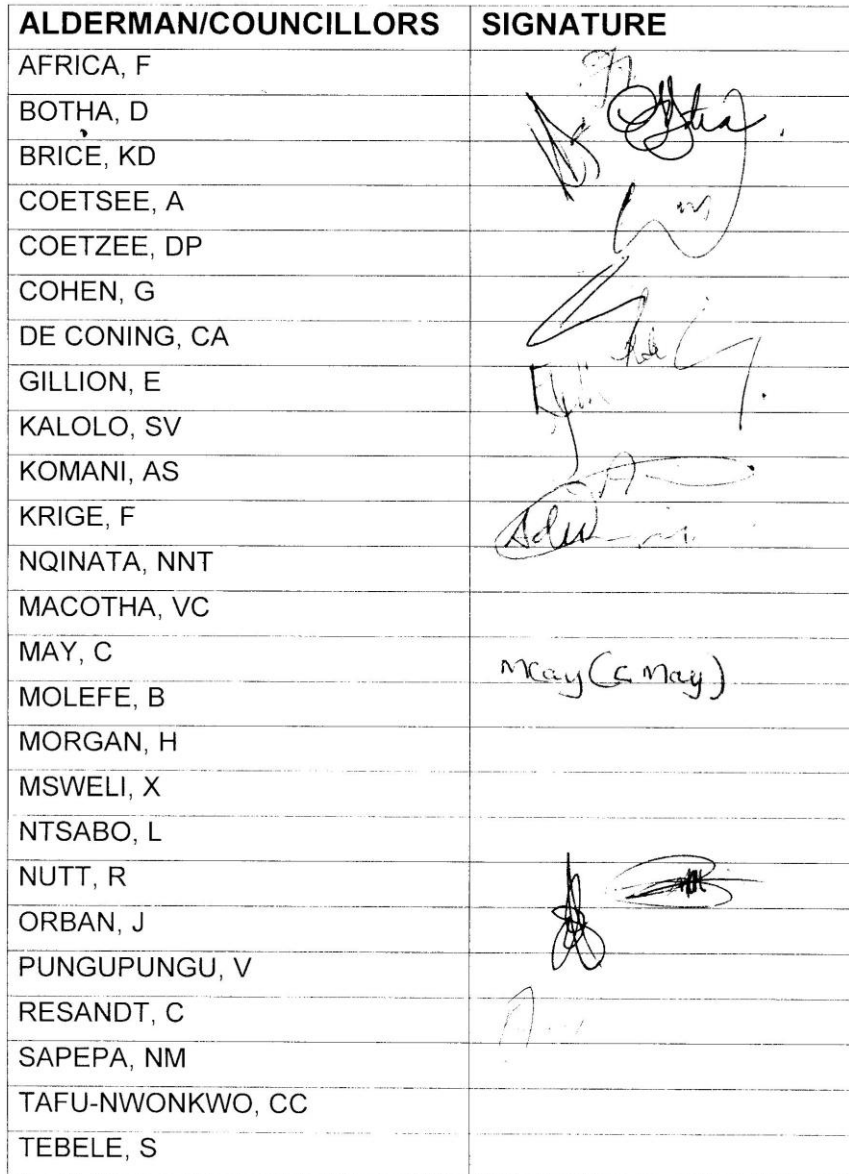 ALDERMAN/COUNCILLORS SIGNATURE
AFRICA, F
BOTHA, D
BRICE, KD
COETSEE, A
COETZEE, DP
COHEN, G
DE CONING, CA
GILLION, E
KALOLO, SV
KOMANI, AS
KRIGE, F
NQINATA, NNT
MACOTHA, VC
MAY, C (C May)
MOLEFE, B
MORGAN, H
MSWELI, X
NTSABO, L
NUTT, R
ORBAN, J
PUNGUPUNGU, V
RESANDT, C
SAPEPA, NM
TAFU-NWONKWO, CC
TEBELE, S